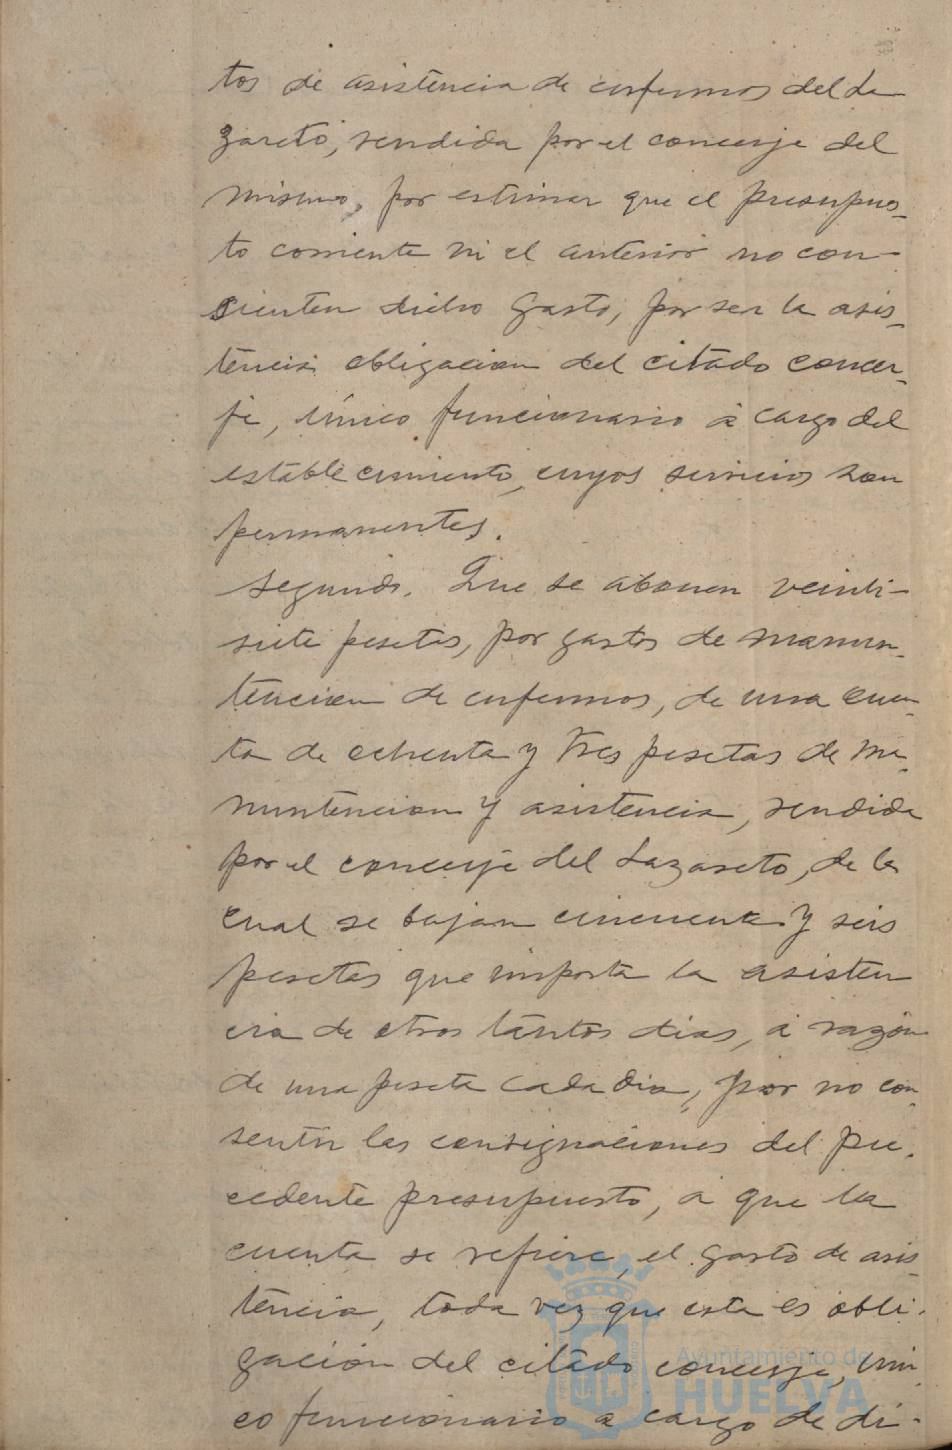 tos de asistencia de enfermos del La
zareto, rendida por el conserje del
mismo, por estimar que el presupues-
to corriente ni el anterior no con-
sienten dicho gasto, por ser la asis-
tencia obligacion del citado conser-
je, único funcionario á cargo del
establecimiento, cuyos servicios son
permanentes.
Segundo. Que se abonen veinti-
siete pesetas, por gastos de manun-
tencion de enfermos, de una cuen-
ta de ochenta y tres pesetas de ma-
nuntencion y asistencia, rendida
por el conserje del Lazareto, de la
cual se bajan cincuenta y seis
pesetas que importa la asisten
cia de otros tantos dias, á razón
de una peseta cada dia, por no con-
sentir las consignaciones del pre-
cedente presupuesto, á que la
cuenta se refiere, el gasto de asis-
tencia, toda vez que esta es obli-
gación del citado conserje, úni-
co funcionario a cargo de di-
Ayuntamiento de
HUELVA